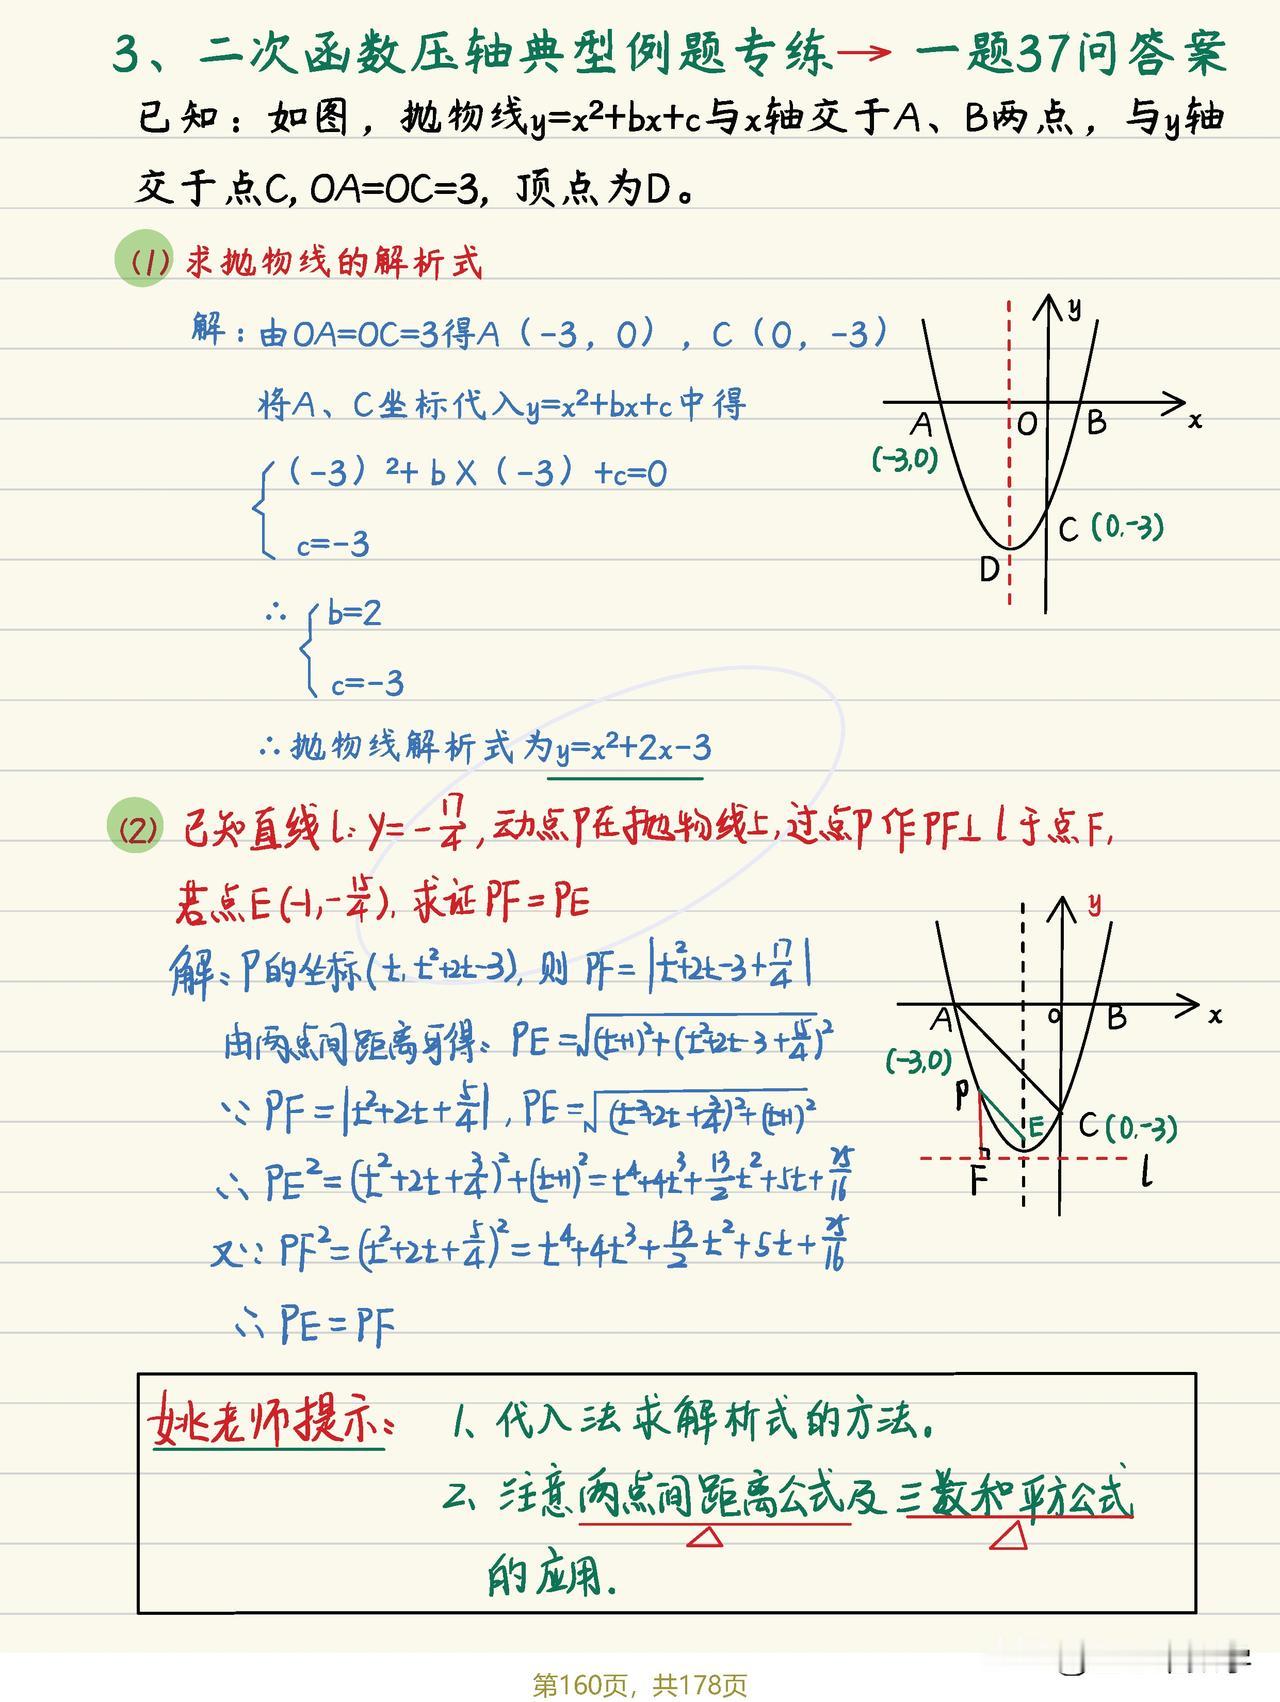 3、二次函数压轴典型例题专练→一题37问答案
已知：如图，抛物线y=x²+bx+c与x轴交于A、B两点，与y轴
交于点C, OA=OC=3，顶点为D。
(1) 求抛物线的解析式
解：由OA=OC=3得A（-3，0），C（0，-3）
将A、C坐标代入y=x²+bx+c中得
（-3）²+b×（-3）+c=0
c=-3
∴ b=2
c=-3
∴抛物线解析式为y=x²+2x-3
y
x
A
O
B
(-3,0)
C (0,-3)
D
(2) 已知直线l: y=-17/4, 动点P在抛物线上, 过点P作PF⊥l于点F,
若点E(-1,-15/4), 求证PF=PE
解: P的坐标(t, t²+2t-3), 则 PF=|t²+2t-3+17/4|
由两点间距离可得: PE=√(t+1)²+(t²+2t-3+15/4)²
∵ PF=|t²+2t+5/4|, PE=√(t²+2t+3/4)²+(t+1)²
∴ PE²=(t²+2t+3/4)²+(t+1)²=t⁴+4t³+13/2t²+5t+25/16
又∵ PF²=(t²+2t+5/4)²=t⁴+4t³+13/2t²+5t+25/16
∴ PE=PF
y
x
A
O
B
(-3,0)
P
E
C(0,-3)
F
l
姚老师提示: 1、代入法求解析式的方法.
2、注意两点间距离公式及三数和平方公式
的应用.
第160页，共178页